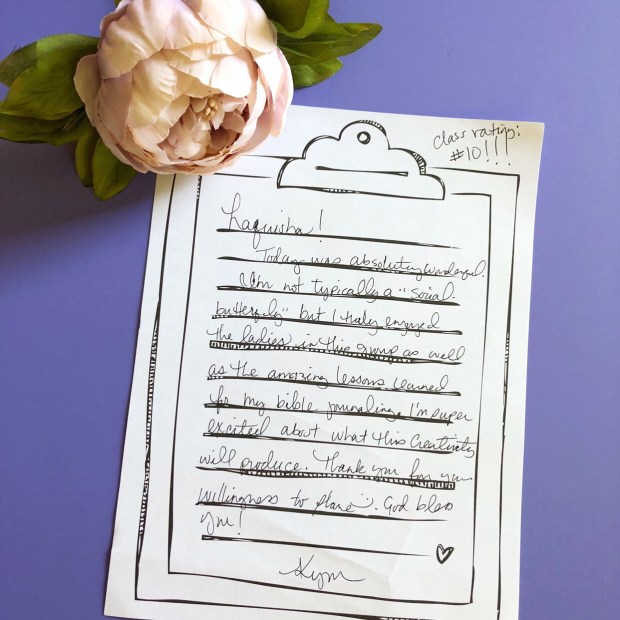 class rating:
#10!!!
Laquisha!
Today was absolutely wonderful.
I'm not typically a "social
butterfly" but I truly enjoyed
the ladies in this group as well
as the amazing lessons learned
for my bible journaling. I'm super
excited about what this creativity
will produce. Thank you for your
willingness to share. God bless
you!
Kym